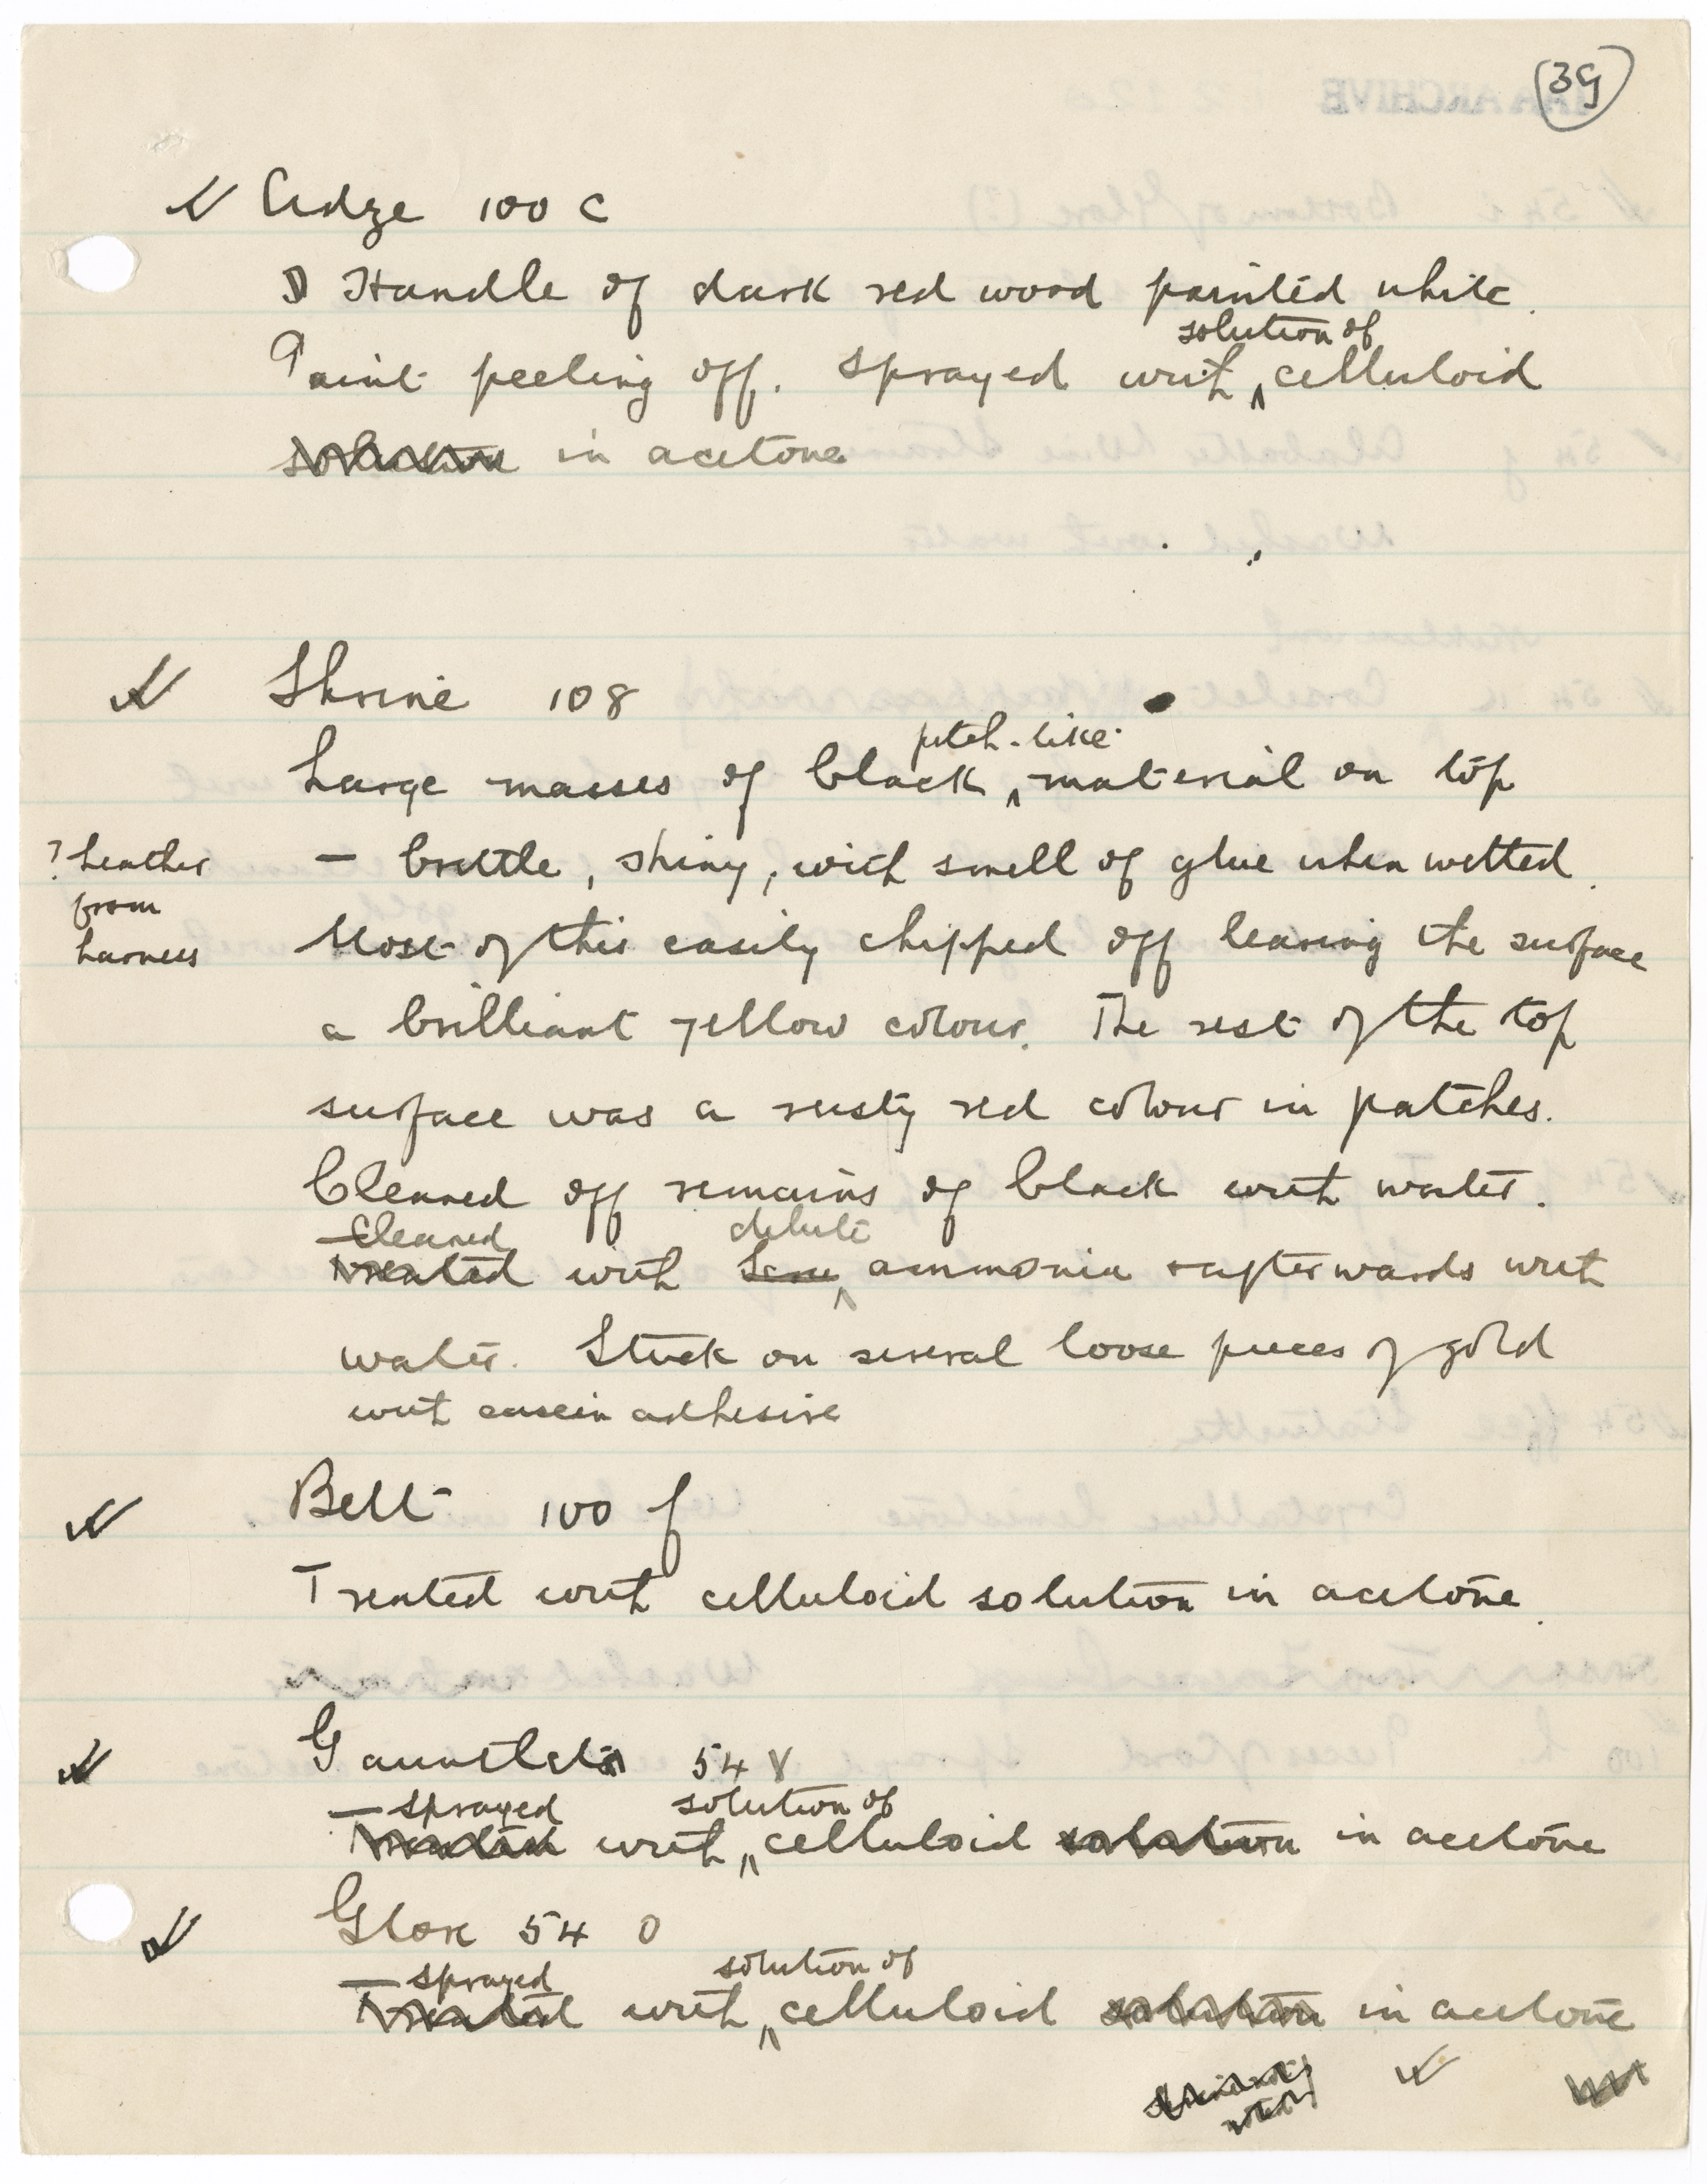 39
Adze 100 c
Handle of dark red wood painted white.
solution of
Paint peeling off. Sprayed with ^ celluloid
solution in acetone
Shrine 108
pitch-like
Large masses of black ^ material on top
? Leather from harness
— brittle, shiny, with smell of glue when wetted.
Most of this easily chipped off leaving the surface
a brilliant yellow colour. The rest of the top
surface was a rusty red colour in patches.
Cleaned off remains of black with water.
— Cleaned dilute
Treated with ^ ammonia & afterwards with
water. Stuck on several loose pieces of gold
with casein adhesive
Belt 100 f
Treated with celluloid solution in acetone.
Gauntlets 54 V
— sprayed solution of
Treated with ^ celluloid solution in acetone
Glove 54 O
— sprayed solution of
Treated with ^ celluloid solution in acetone